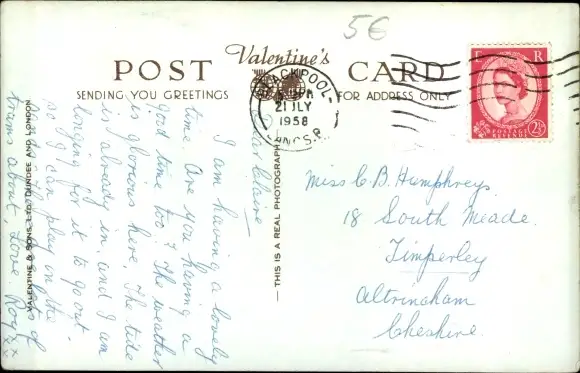 5€
Valentine's
POST CARD
SENDING YOU GREETINGS
FOR ADDRESS ONLY
BLACKPOOL
21 JLY
1958
LANCS.
E R
POSTAGE
REVENUE
2½
Dear Claire
I am having a lovely
time. Are you having a
good time too? The weather
is glorious here. The tide
is already in and I am
longing for it to go out
so I can play on the
of
trams about. Love Roy xx
THIS IS A REAL PHOTOGRAPH
VALENTINE & SONS, LTD. DUNDEE AND LONDON
Miss C. B. Humphreys.
18 South Meade.
Timperley
Altrincham
Cheshire.